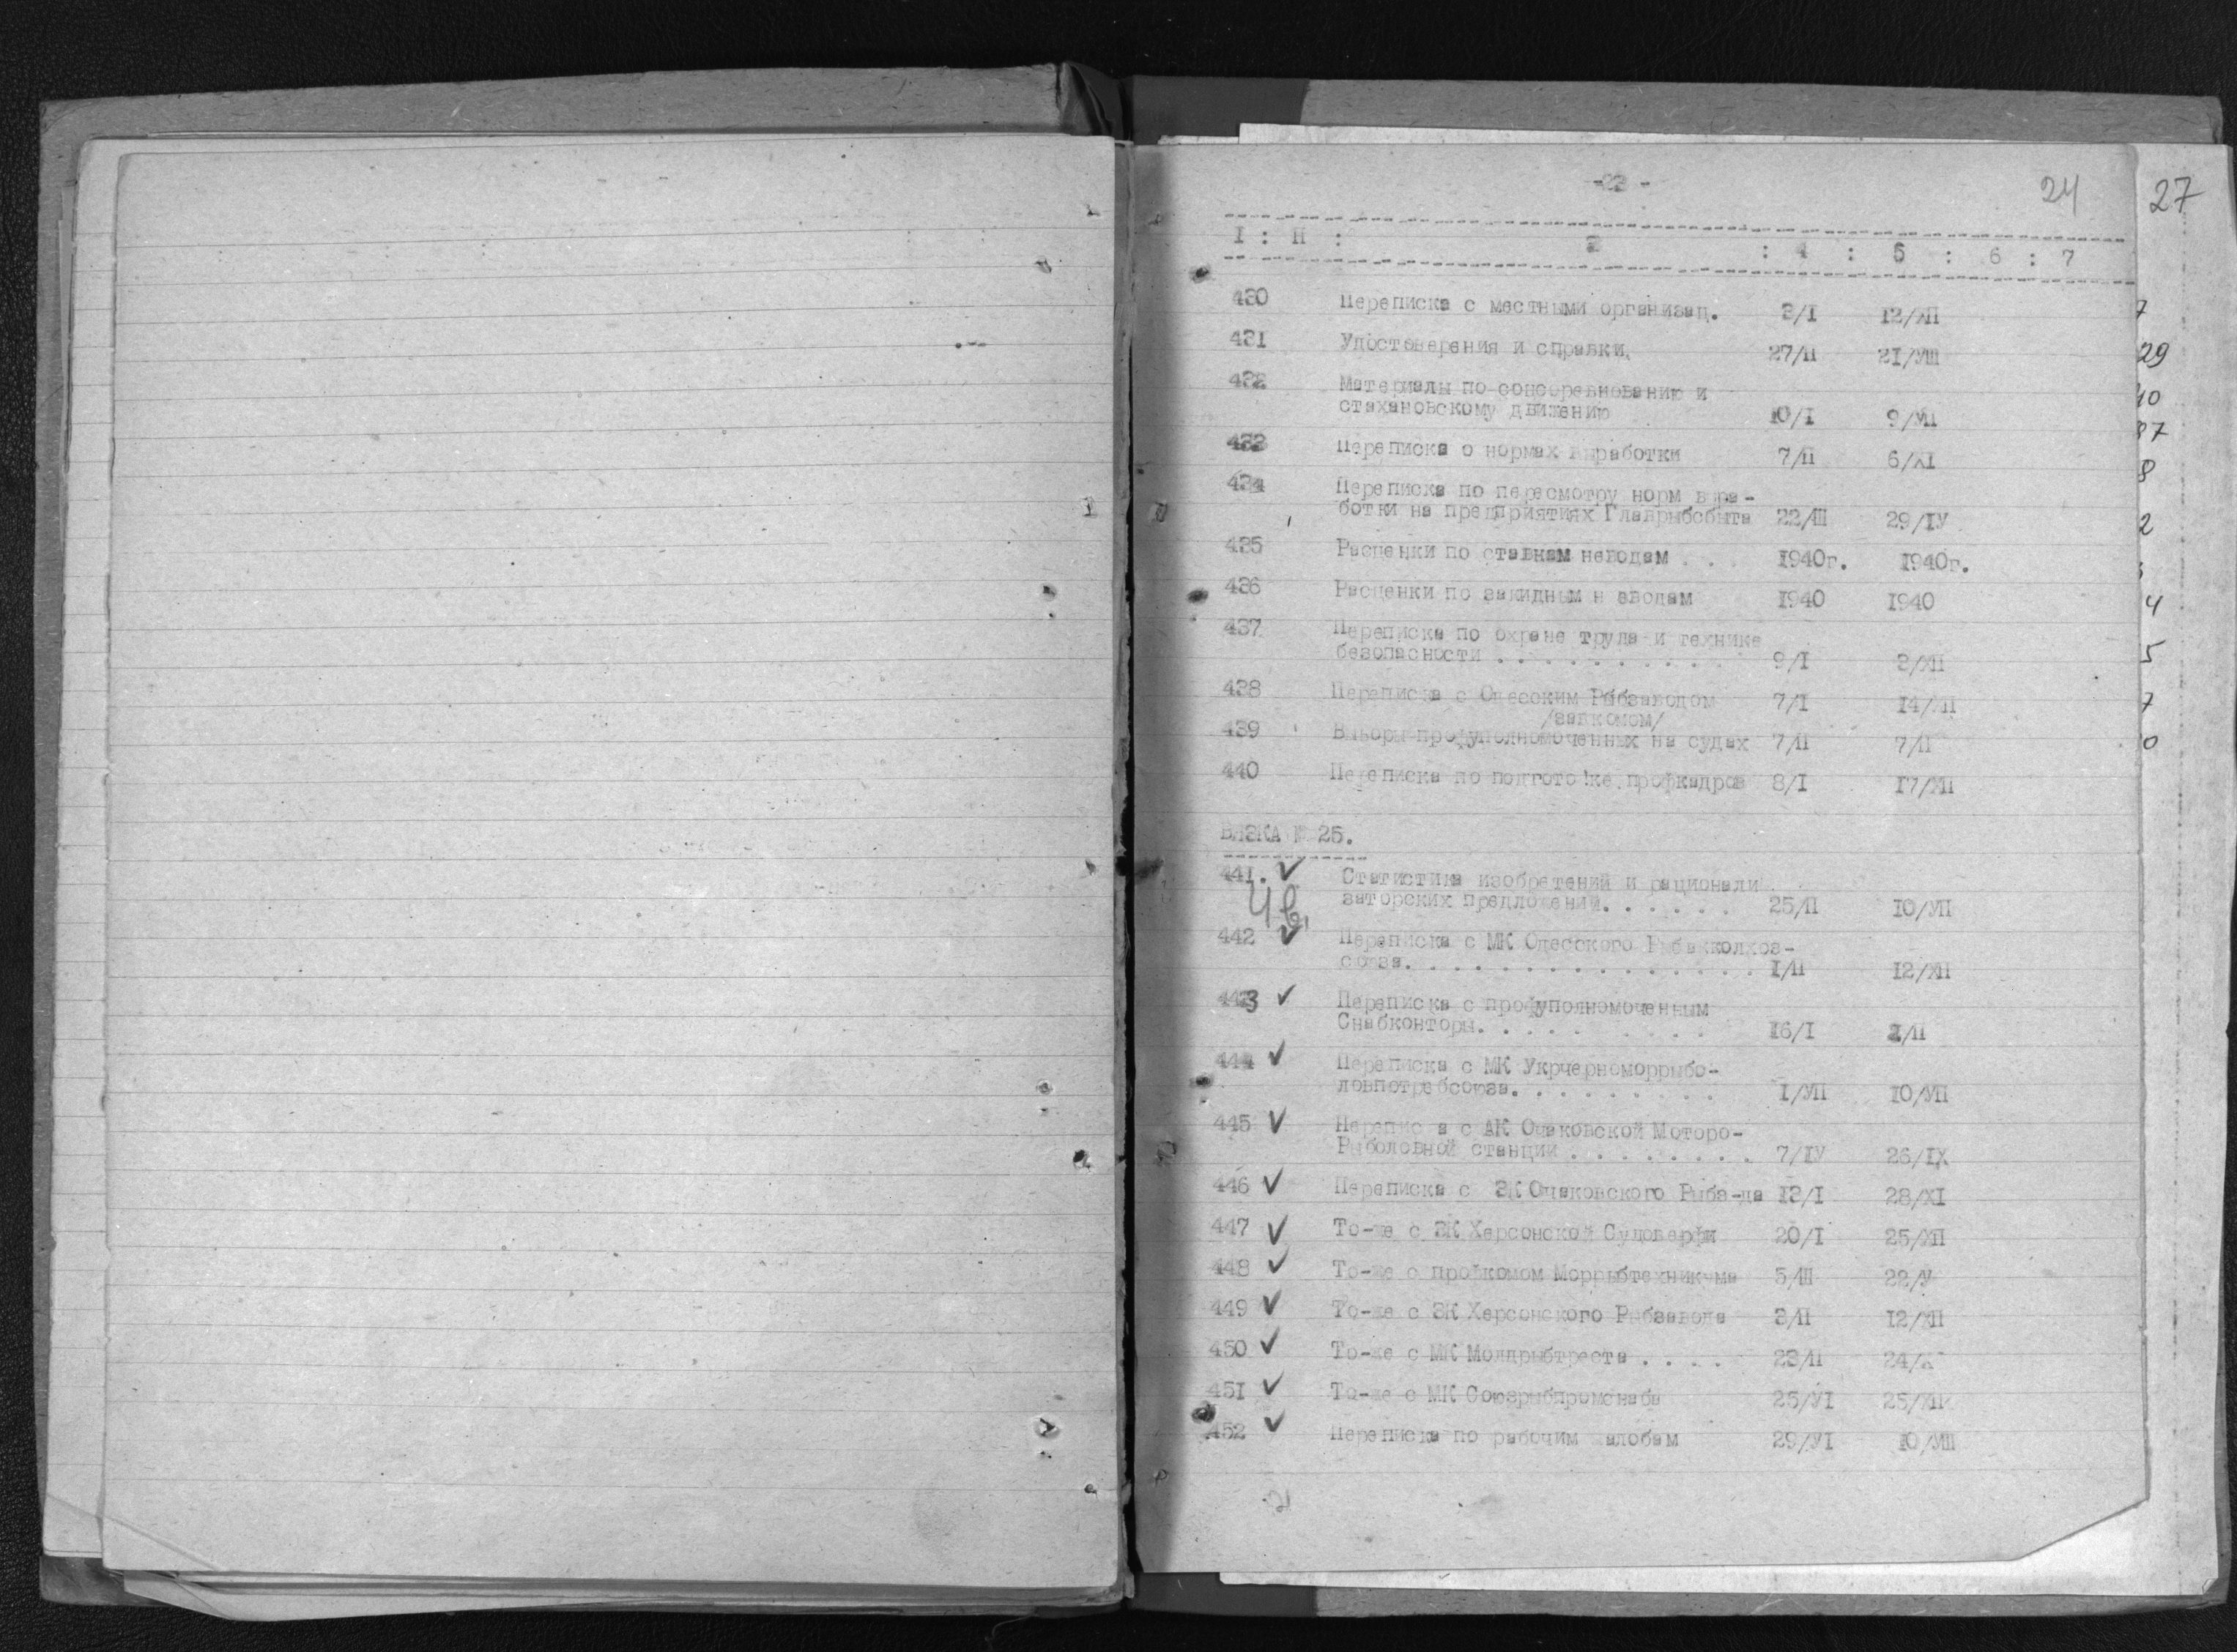 24
27
I : II : : 4 : 5 : 6 : 7
430 Переписка с местными организац. 3/I 12/XII
431 Удостоверения и справки. 27/II 21/УIII
432 Материалы по соцсоревнованию и
стахановскому движению 10/I 9/УII
433 Переписка о нормах выработки 7/II 6/XI
434 Переписка по пересмотру норм выра-
ботки на предприятиях Главрыбсбыта 22/III 29/IУ
435 Расценки по ставным неводам . . . 1940г. 1940г.
436 Расценки по закидным н еводам 1940 1940
437 Переписка по охране труда и технике
безопасности . . . . . . . . . . 9/I 3/XII
438 Переписка с Одесским Рыбзаводом 7/I 14/XII
/завкомом/
439 Выборы профуполномоченных на судах 7/II 7/II
440 Переписка по подгото ке профкадров 8/I 17/XII
ВЯЗКА № 25.
441. ✓ Статистика изобретений и рационали
заторских предложений. . . . . . 25/II 10/УII
442 ✓ Переписка с МК Одесского Рыбакколхоз-
союза. . . . . . . . . . . . . . . . 1/II 12/XII
443 ✓ Переписка с профуполномоченным
Снабконторы. . . . . . . . . . 16/I /II
444 ✓ Переписка с МК Укрчерноморрыбо-
ловпотребсоюза. . . . . . . . . 1/УII 10/УII
445 ✓ Перепис а с АК Очаковской Моторо-
Рыболовной станции . . . . . . . . 7/IУ 26/IX
446 ✓ Переписка с ЗК Очаковского Рыбз-да 13/I 28/XI
447 ✓ То-же с ЗК Херсонской Судоверфи 20/I 25/XII
448 ✓ То-же с профкомом Моррыбтехникума 5/III 22/У
449 ✓ То-же с ЗК Херсонского Рыбзавода 3/II 12/XII
450 ✓ То-же с МК Молдрыбтреста . . . . 23/II 24/X
451 ✓ То-же с МК Союзрыбпромснаба 25/УI 25/XII
452 ✓ Переписка по рабочим жалобам 29/УI 10/УIII
29
8
2
4
5
7
0